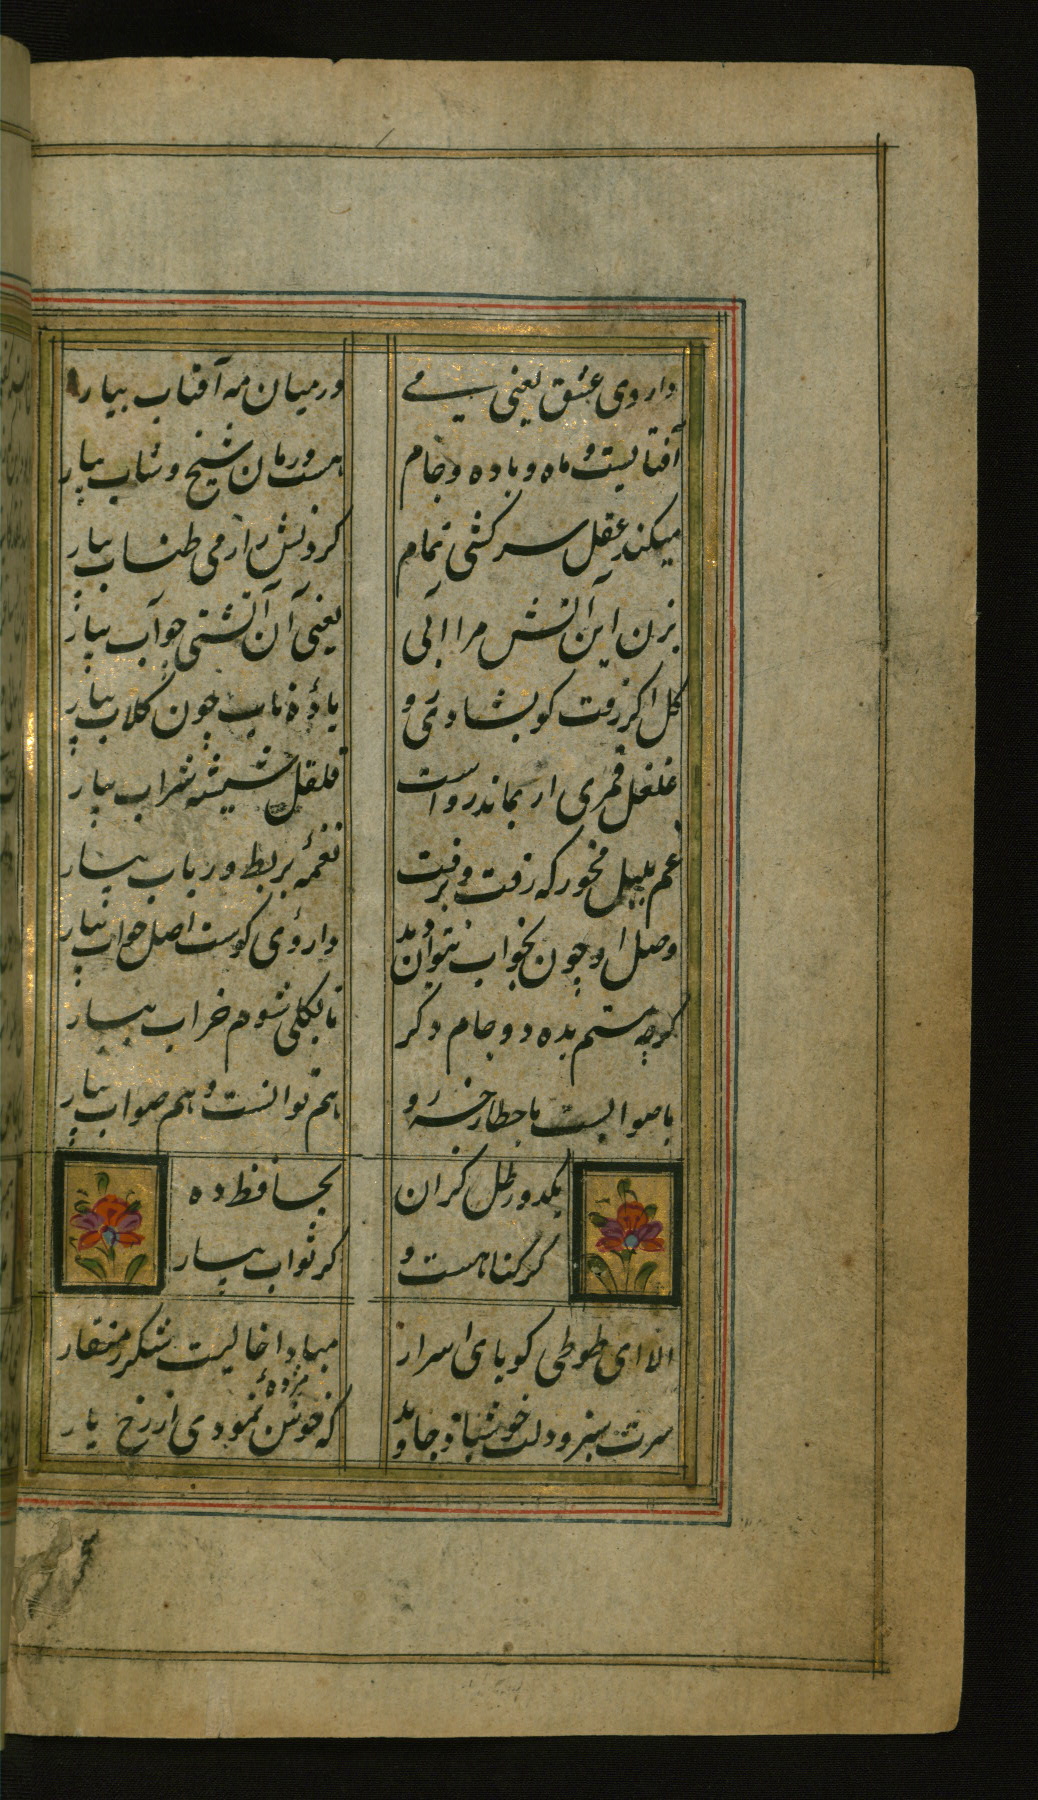 داروی عشق یعنی می
درمیان مه آفتاب بیار
آفتابست و ماه و باده و جام
هست درمان شیخ و شاب بیار
میکند عقل سرکشی تمام
کردنش را ز می طناب بیار
بزن این آتش مرا آبی
یعنی آن آتشی چو آب بیار
کل اکر رفت کو بشادی رو
بادهٔ ناب چون کلاب بیار
غلغل قمری ار بماند رواست
قلقل شیشه شراب بیار
غم بلبل مخور که رفت و برفت
نغمهٔ بربط و رباب بیار
وصل او چون بخواب نتوان دید
داروئی کوست اصل خواب بیار
کرچه مستم بده دو جام دکر
تا بکلی شوم خراب بیار
با صوابست با خطا رو
هم توانست و هم صواب بیار
یکدو رطل کران
بحافظ ده
کر کناهست و
کر ثواب بیار
الا ای طوطی کویای اسرار
مبادا خالیت شکر ز منقار
سرت سبز و دلت خوش باد جاوید
که خوش نمودی از رخ یار